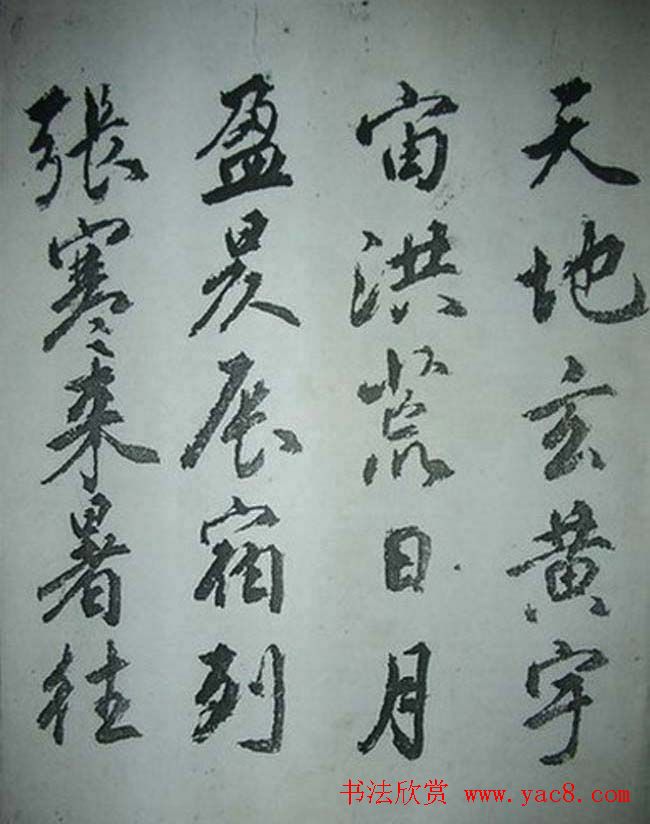 天地玄黄宇
宙洪荒日月
盈昃辰宿列
張寒来暑往
书法欣赏 www.yac8.com